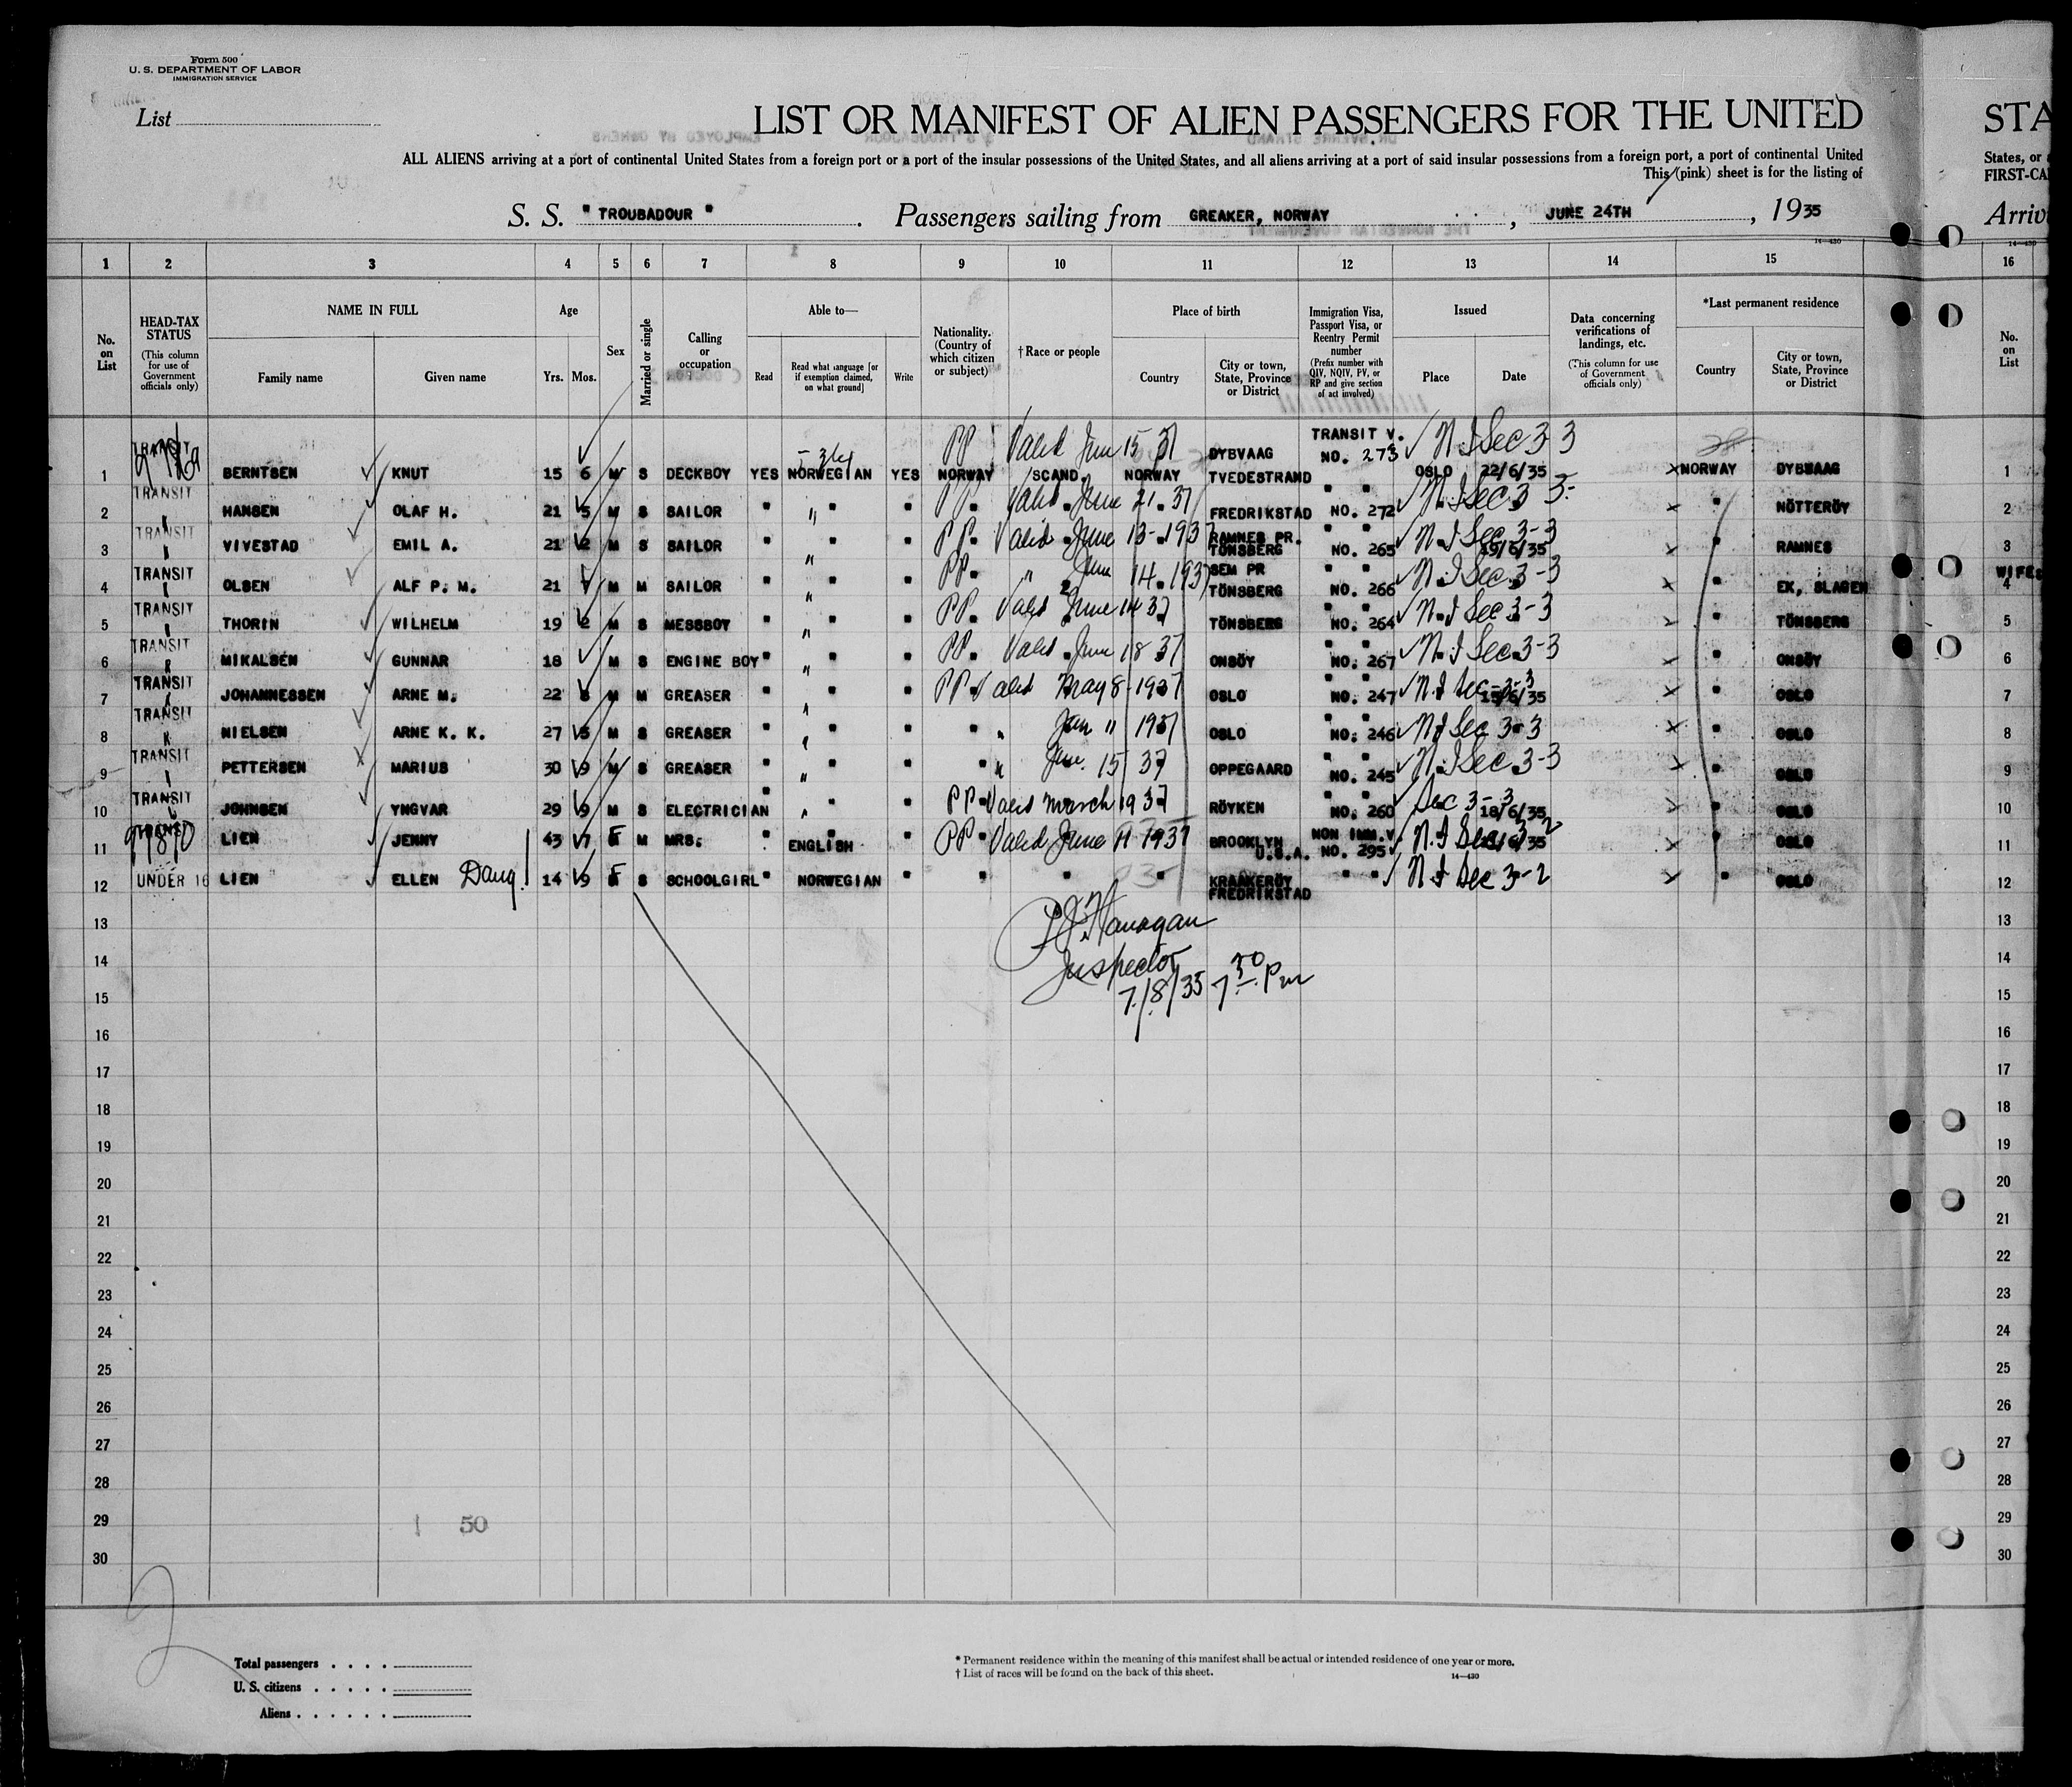 Form 500
U. S. DEPARTMENT OF LABOR
IMMIGRATION SERVICE
List
LIST OR MANIFEST OF ALIEN PASSENGERS FOR THE UNITED
STA
ALL ALIENS arriving at a port of continental United States from a foreign port or a port of the insular possessions of the United States, and all aliens arriving at a port of said insular possessions from a foreign port, a port of continental United
States, or
This (pink) sheet is for the listing of
FIRST-CA
S. S. "TROUBADOUR" Passengers sailing from GREAKER, NORWAY , JUNE 24TH , 1935
Arriv
14—430
1 2 3 4 5 6 7 8 9 10 11 12 13 14 15 16
No. on List
HEAD-TAX STATUS (This column for use of Government officials only)
NAME IN FULL
Family name
Given name
Age
Yrs. Mos.
Sex
Married or single
Calling or occupation
Able to—
Read
Read what language [or if exemption claimed, on what ground]
Write
Nationality. (Country of which citizen or subject)
†Race or people
Place of birth
Country
City or town, State, Province or District
Immigration Visa, Passport Visa, or Reentry Permit number (Prefix number with QIV, NQIV, PV, or RP and give section of act involved)
Issued
Place
Date
Data concerning verifications of landings, etc. (This column for use of Government officials only)
*Last permanent residence
Country
City or town, State, Province or District
No. on List
PP Valid Jun 15 37 DYBVAAG TRANSIT V. N.I Sec 3 3
1 TRANSIT BERNTSEN KNUT 15 6 M S DECKBOY YES NORWEGIAN YES NORWAY SCAND. NORWAY TVEDESTRAND NO. 273 OSLO 22/6/35 NORWAY DYBVAAG 1
2 TRANSIT HANSEN OLAF H. 21 5 M S SAILOR " " " PP. Valid June 21. 37 FREDRIKSTAD " " NO. 272 N.I Sec 3 3. " NÖTTERÖY 2
3 TRANSIT VIVESTAD EMIL A. 21 2 M S SAILOR " " " PP. Valid June 13-1937 RAMNES PR. TÖNSBERG " " NO. 265 N.I Sec 3-3 19/6/35 " RAMNES 3
4 TRANSIT OLSEN ALF P. M. 21 M M SAILOR " " " PP. " June 14. 1937 SEM PR TÖNSBERG " " NO. 266 N.I Sec 3-3 " EK, SLAGEN WIFE 4
5 TRANSIT THORIN WILHELM 19 2 M S MESSBOY " " " PP. Valid June 14 37 TÖNSBERG " " NO. 264 N.I Sec 3-3 " TÖNSBERG 5
6 TRANSIT MIKALSEN GUNNAR 18 M S ENGINE BOY " " " PP. Valid June 18 37 ONSÖY " " NO. 267 N.I Sec 3-3 " ONSÖY 6
7 TRANSIT JOHANNESSEN ARNE M. 22 M M GREASER " " " PP Valid May 8-1937 OSLO " " NO. 247 N.I Sec 3-3 15/6/35 " OSLO 7
8 TRANSIT NIELSEN ARNE K. K. 27 5 M S GREASER " " " " " Jan 11 1937 OSLO " " NO. 246 N.I Sec 3-3 " OSLO 8
9 TRANSIT PETTERSEN MARIUS 30 9 M S GREASER " " " " " 15 37 OPPEGAARD " " NO. 245 N.I Sec 3-3 " OSLO 9
10 TRANSIT JOHNSEN YNGVAR 29 9 M S ELECTRICIAN " " " PP Valid March 1937 RÖYKEN " " NO. 260 Sec 3-3 18/6/35 " OSLO 10
11 LIEN JENNY 43 7 F M MRS. " ENGLISH " PP Valid June 11 1937 BROOKLYN U.S.A. NON IMM.V NO. 295 N.I Sec 3 2 " OSLO 11
12 UNDER 16 LIEN ELLEN Daug. 14 9 F S SCHOOLGIRL " NORWEGIAN " " " " KRAAKERÖY FREDRIKSTAD " " N.I Sec 3-2 " OSLO 12
13 13
14 Inspector 14
15 7/8/35 7 30 Pm 15
16 16
17 17
18 18
19 19
20 20
21 21
22 22
23 23
24 24
25 25
26 26
27 27
28 28
29 50 29
30 30
Total passengers . . . .
U. S. citizens . . . . .
Aliens . . . . . .
* Permanent residence within the meaning of this manifest shall be actual or intended residence of one year or more.
† List of races will be found on the back of this sheet.
14—430